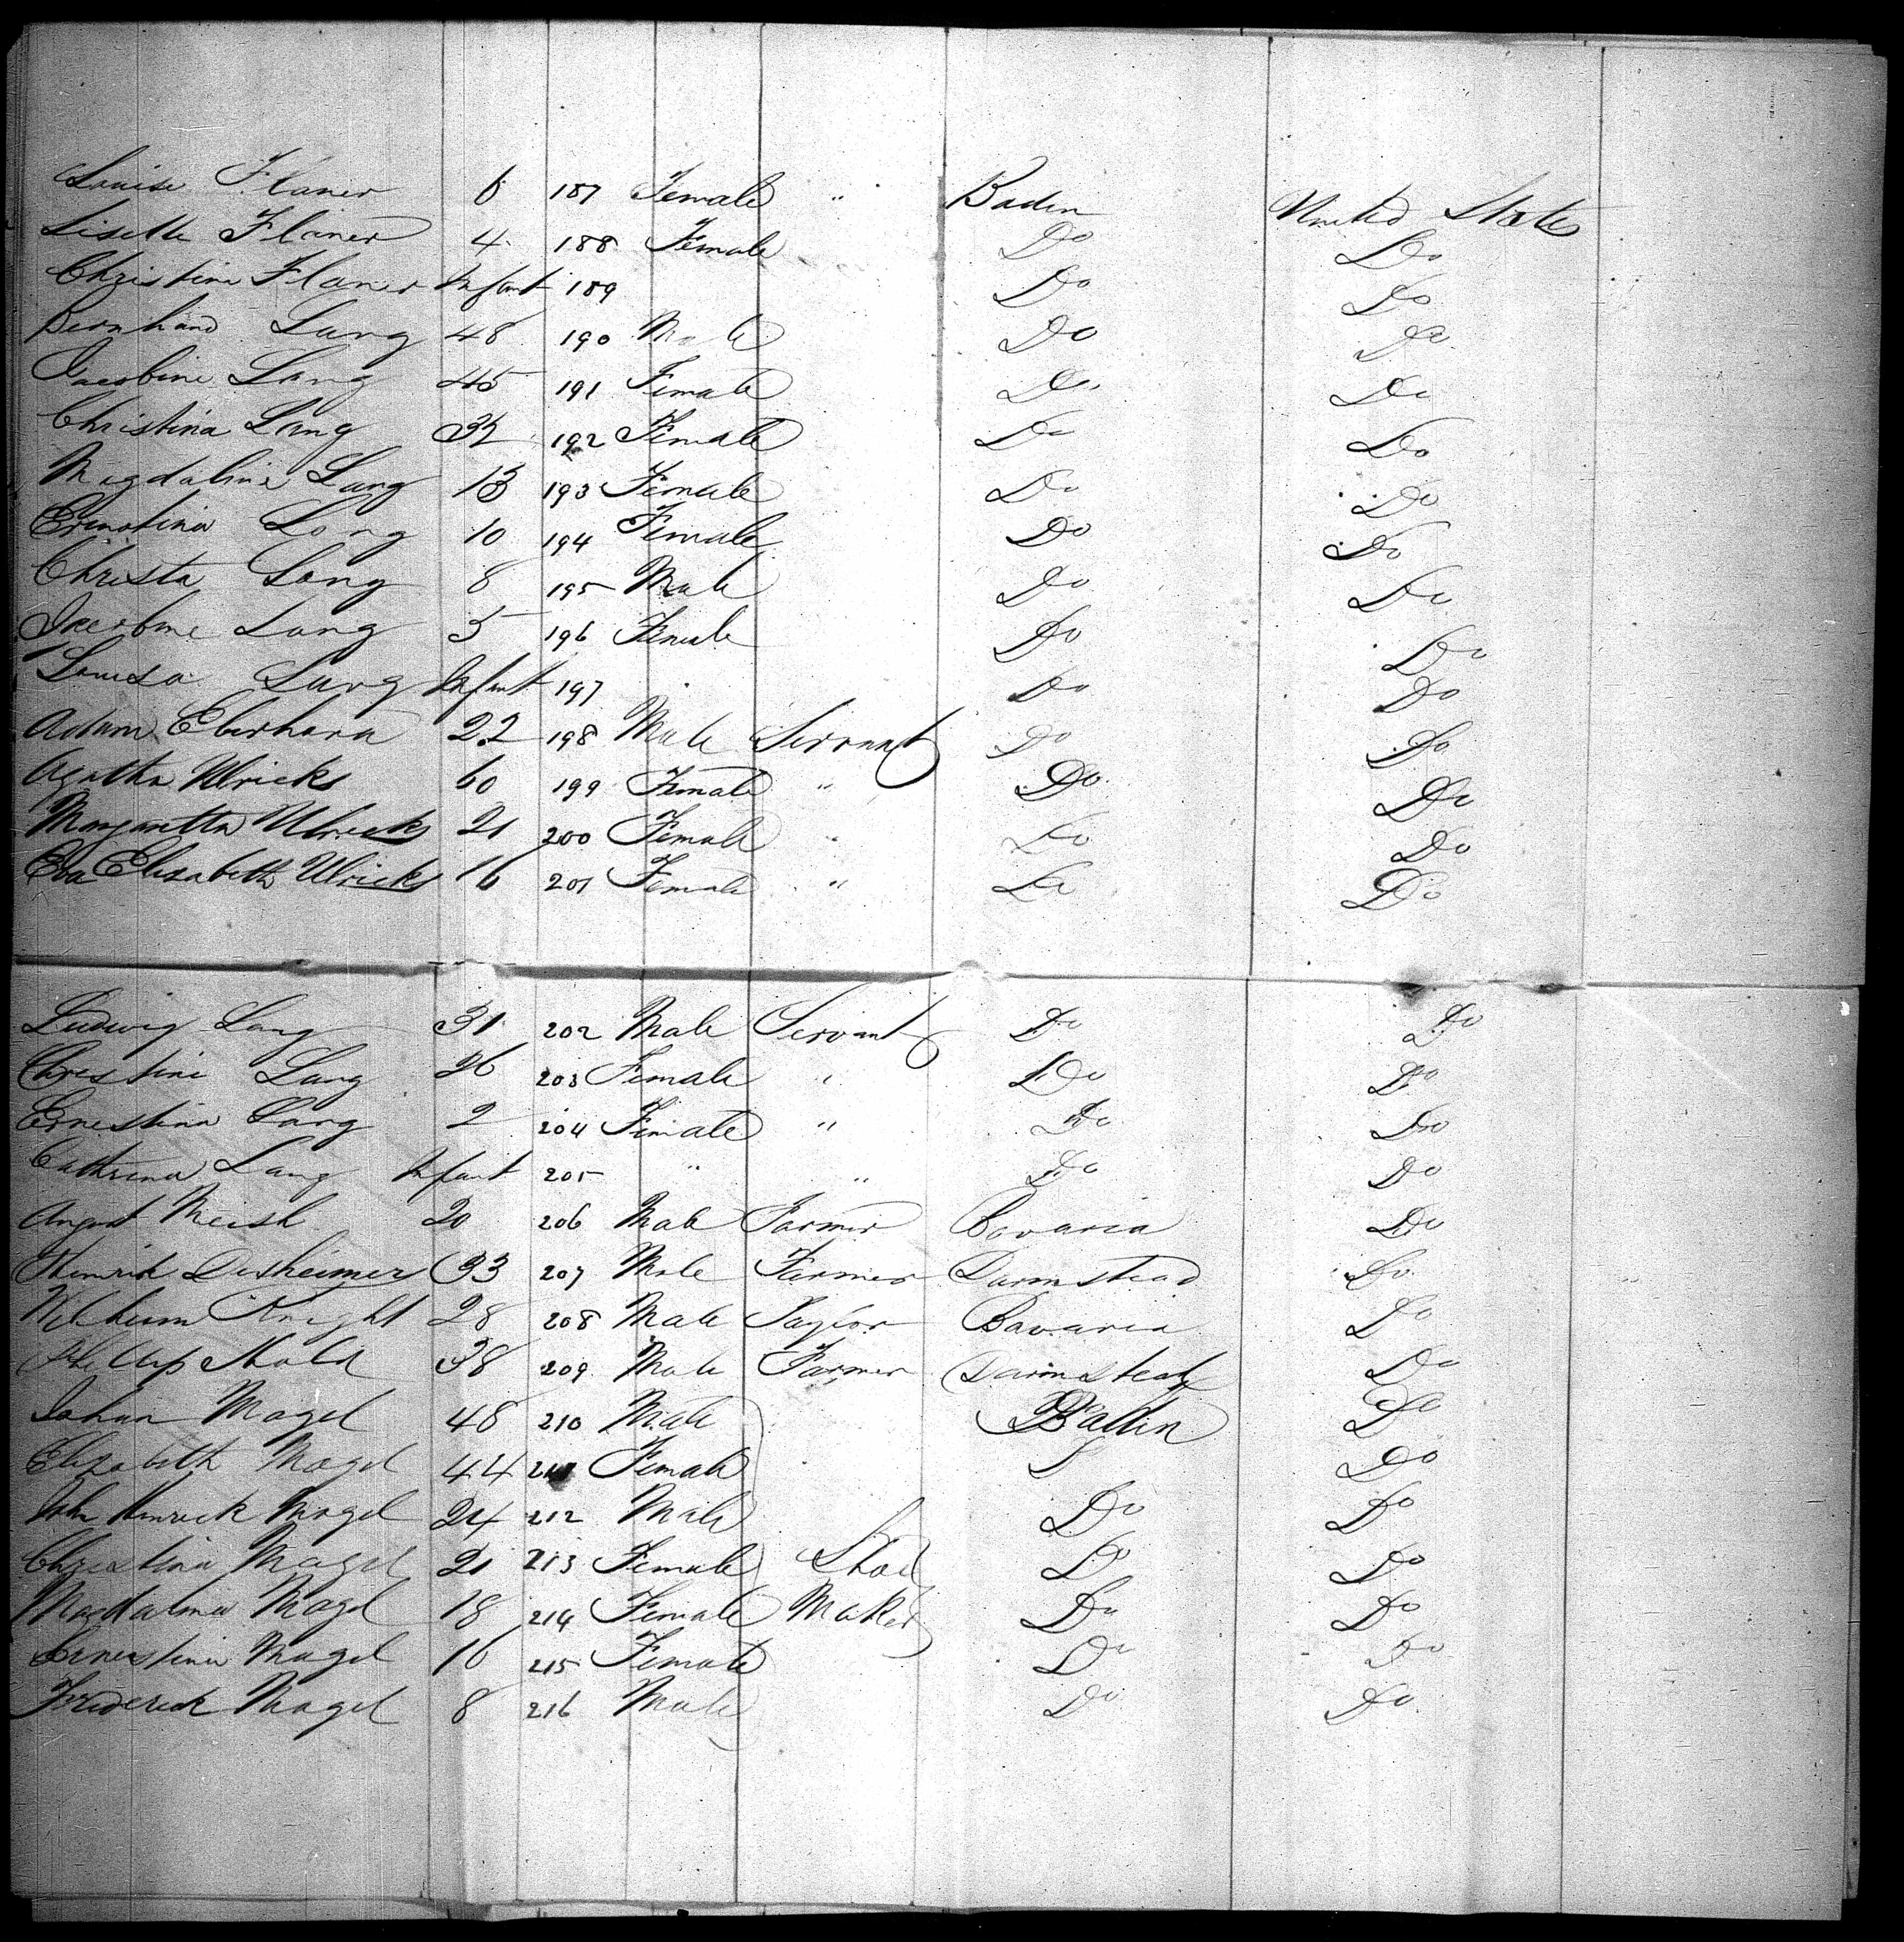 Louise Flaner 6 187 Female " Baden United States
Lisette Flaner 4 188 Female Do Do
Christine Flaner Infant 189 Do Do
Bernhard Lang 48 190 Male Do Do
Jacobine Lang 45 191 Female Do Do
Christina Lang 192 Female Do Do
Magdaline Lang 13 193 Female Do Do
Ernstina Lang 10 194 Female Do Do
Christn Lang 8 195 Male Do Do
Jacobine Lang 5 196 Female Do Do
Louisa Lang Infant 197 Do Do
Adam Eberhard 22 198 Male Servant Do Do
Agatha Ulricks 60 199 Female " Do Do
Margaretta Ulricks 21 200 Female " Do Do
Eva Elisabeth Ulricks 16 201 Female " Do Do
Ludwig Lang 31 202 Male Servant Do Do
Christine Lang 26 203 Female " Do Do
Ernestina Lang 2 204 Female " Do Do
Cathrina Lang Infant 205 " " Do Do
August 20 206 Male Farmer Bavaria Do
Heinrich Disheimer 33 207 Male Farmer Darmstead Do
Wilheim Knight 28 208 Male Taylor Bavaria Do
Phillip 38 209 Male Farmer Darmstead Do
Johan Magel 48 210 Male Baden Do
Elizabeth Magel 44 211 Female Do
John Henrick Magel 24 212 Male Do Do
Christina Magel 21 213 Female Shoe Do Do
Magdalina Magel 18 214 Female Maker Do Do
Ernestina Magel 16 215 Female Do Do
Frederick Magel 8 216 Male Do Do